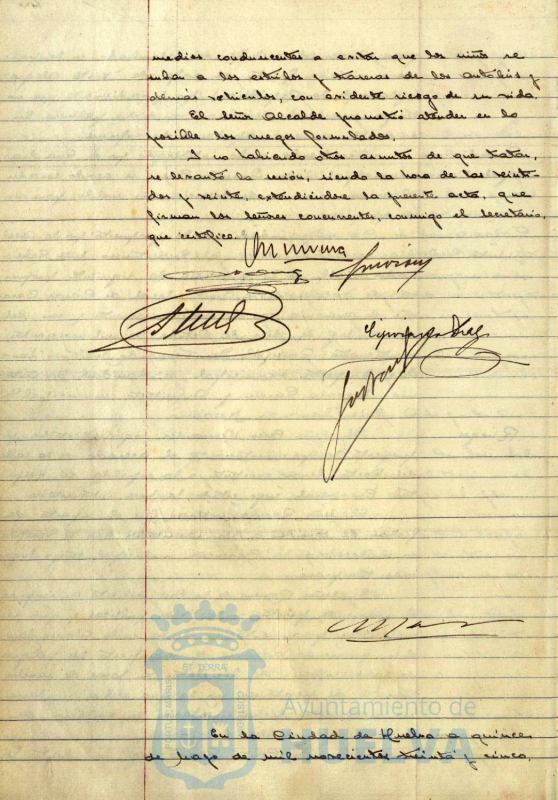 medios conducentes a evitar que los niños se
suban a los estribos y traseras de los autobús y
demás vehículos, con evidente riesgo de su vida.
El señor Alcalde prometió atender en lo
posible los ruegos formulados.
Y no habiendo otros asuntos de que tratar,
se levantó la sesión, siendo la hora de las veinti-
dos y veinte, extendiéndose la presente acta, que
firman los señores concurrentes, conmigo el Secretario,
que certifico.
Ayuntamiento de
HUELVA
En la Ciudad de Huelva a quince
de mayo de mil novecientos treinta y cinco,